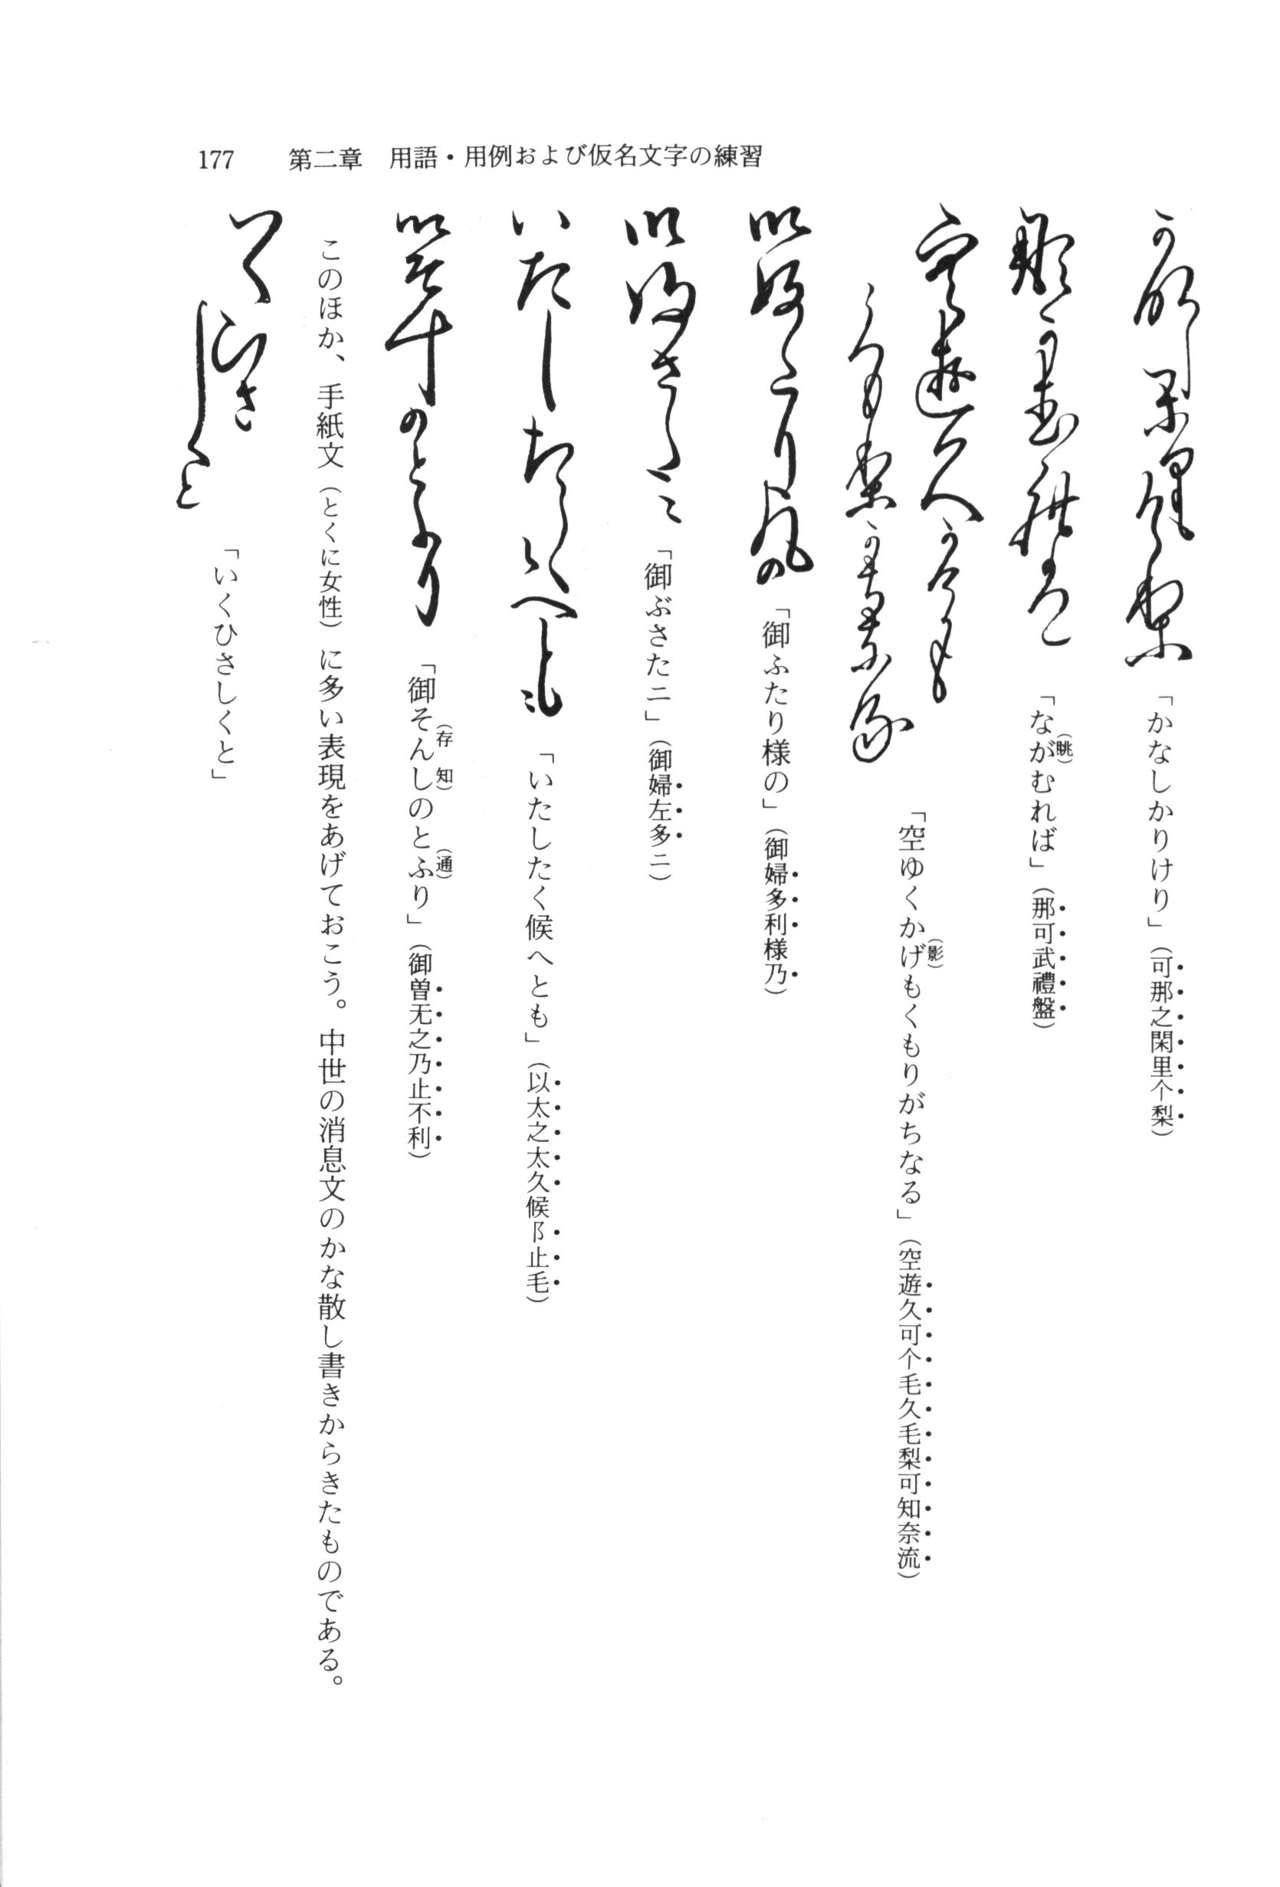 177　第二章　用語・用例および仮名文字の練習
「かなしかりけり」（可那之閑里个梨）
「ながむれば」（那可武禮盤）
（眺）
「空ゆくかげもくもりがちなる」（空遊久可个毛久毛梨可知奈流）
（影）
「御ふたり様の」（御婦多利様乃）
「御ぶさたニ」（御婦左多ニ）
「いたしたく候へとも」（以太之太久候阝止毛）
「御そんしのとふり」（御曽无之乃止不利）
（存知）（通）
このほか、手紙文（とくに女性）に多い表現をあげておこう。中世の消息文のかな散し書きからきたものである。
「いくひさしくと」